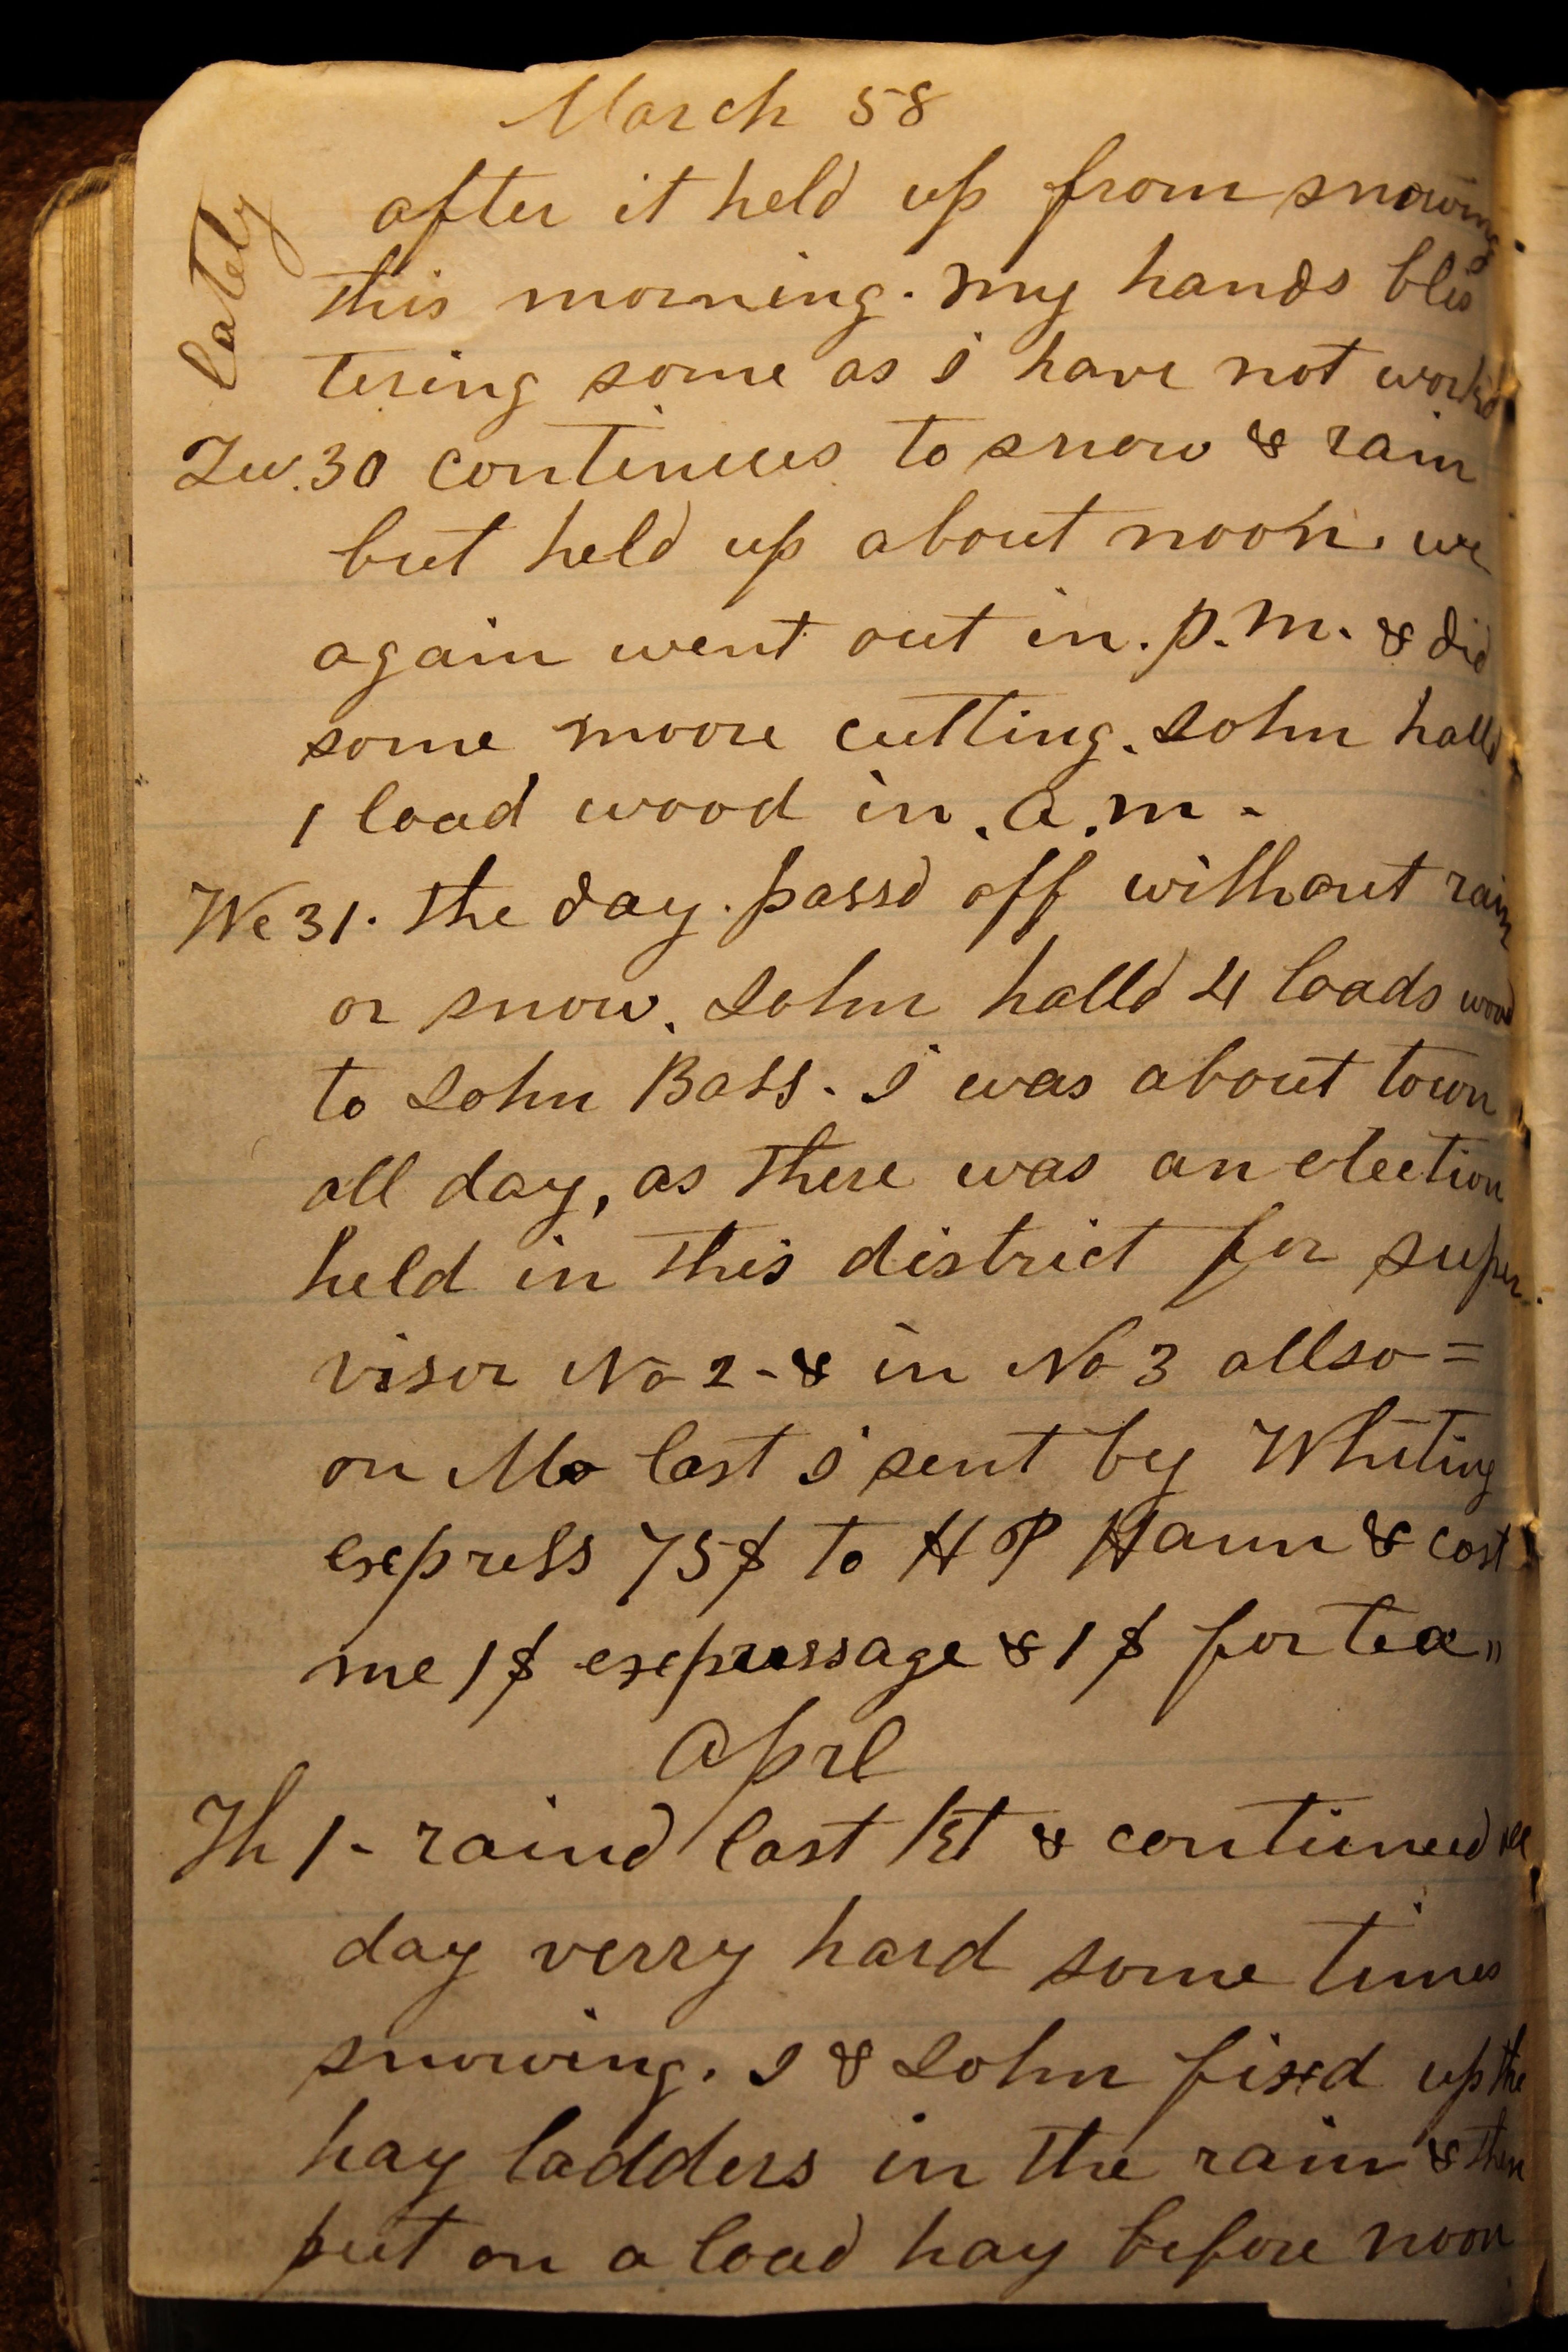 March 58
after it held up from snowing
this morning. my hands blis
tering some as i have not workd
lately
Tu. 30 continues to snow & rain
but held up about noon. we
again went out in. p.m. & did
some moore cutting. John halld
1 load wood in. a.m.
We 31. the day. passd off without rain
or snow. John halld 4 loads wood
to John Bass. i was about town
all day, as there was an election
held in this district for super
visor No 2 - & in No 3 allso =
on Mo last i sent by Whiting
express 75$ to H P Hann & cost
me 1$ expressage & 1$ for tea "
Aprl
Th 1 - raind last 1st & continued all
day verry hard some times
snowing. I & John fixd up the
hay ladders in the rain & then
put on a load hay before noon